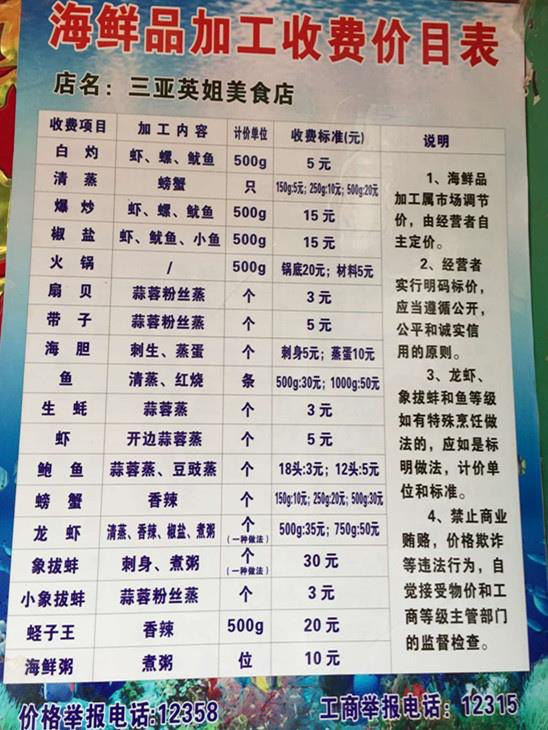 海鲜品加工收费价目表
店名：三亚英姐美食店
收费项目 加工内容 计价单位 收费标准(元) 说明
白灼 虾、螺、鱿鱼 500g 5元
清蒸 螃蟹 只 150g:5元; 250g:10元; 500g:20元
爆炒 虾、螺、鱿鱼 500g 15元
椒盐 虾、鱿鱼、小鱼 500g 15元
火锅 / 500g 锅底20元; 材料5元
扇贝 蒜蓉粉丝蒸 个 3元
带子 蒜蓉粉丝蒸 个 5元
海胆 刺生、蒸蛋 个 刺身5元; 蒸蛋10元
鱼 清蒸、红烧 条 500g:30元; 1000g:50元
生蚝 蒜蓉蒸 个 3元
虾 开边蒜蓉蒸 个 5元
鲍鱼 蒜蓉蒸、豆豉蒸 个 18头:3元; 12头:5元
螃蟹 香辣 个 150g:10元; 250g:20元; 500g:30元
龙虾 清蒸、香辣、椒盐、煮粥 个(一种做法) 500g:35元; 750g:50元
象拔蚌 刺身、煮粥 个(一种做法) 30元
小象拔蚌 蒜蓉粉丝蒸 个 3元
蛏子王 香辣 500g 20元
海鲜粥 煮粥 位 10元
1、海鲜品
加工属市场调节
价，由经营者自
主定价。
2、经营者
实行明码标价，
应当遵循公开，
公平和诚实信
用的原则。
3、龙虾、
象拔蚌和鱼等级
如有特殊烹饪做
法的，应如是标
明做法，计价单
位和标准。
4、禁止商业
贿赂，价格欺诈
等违法行为，自
觉接受物价和工
商等级主管部门
的监督检查。
价格举报电话:12358 工商举报电话：12315